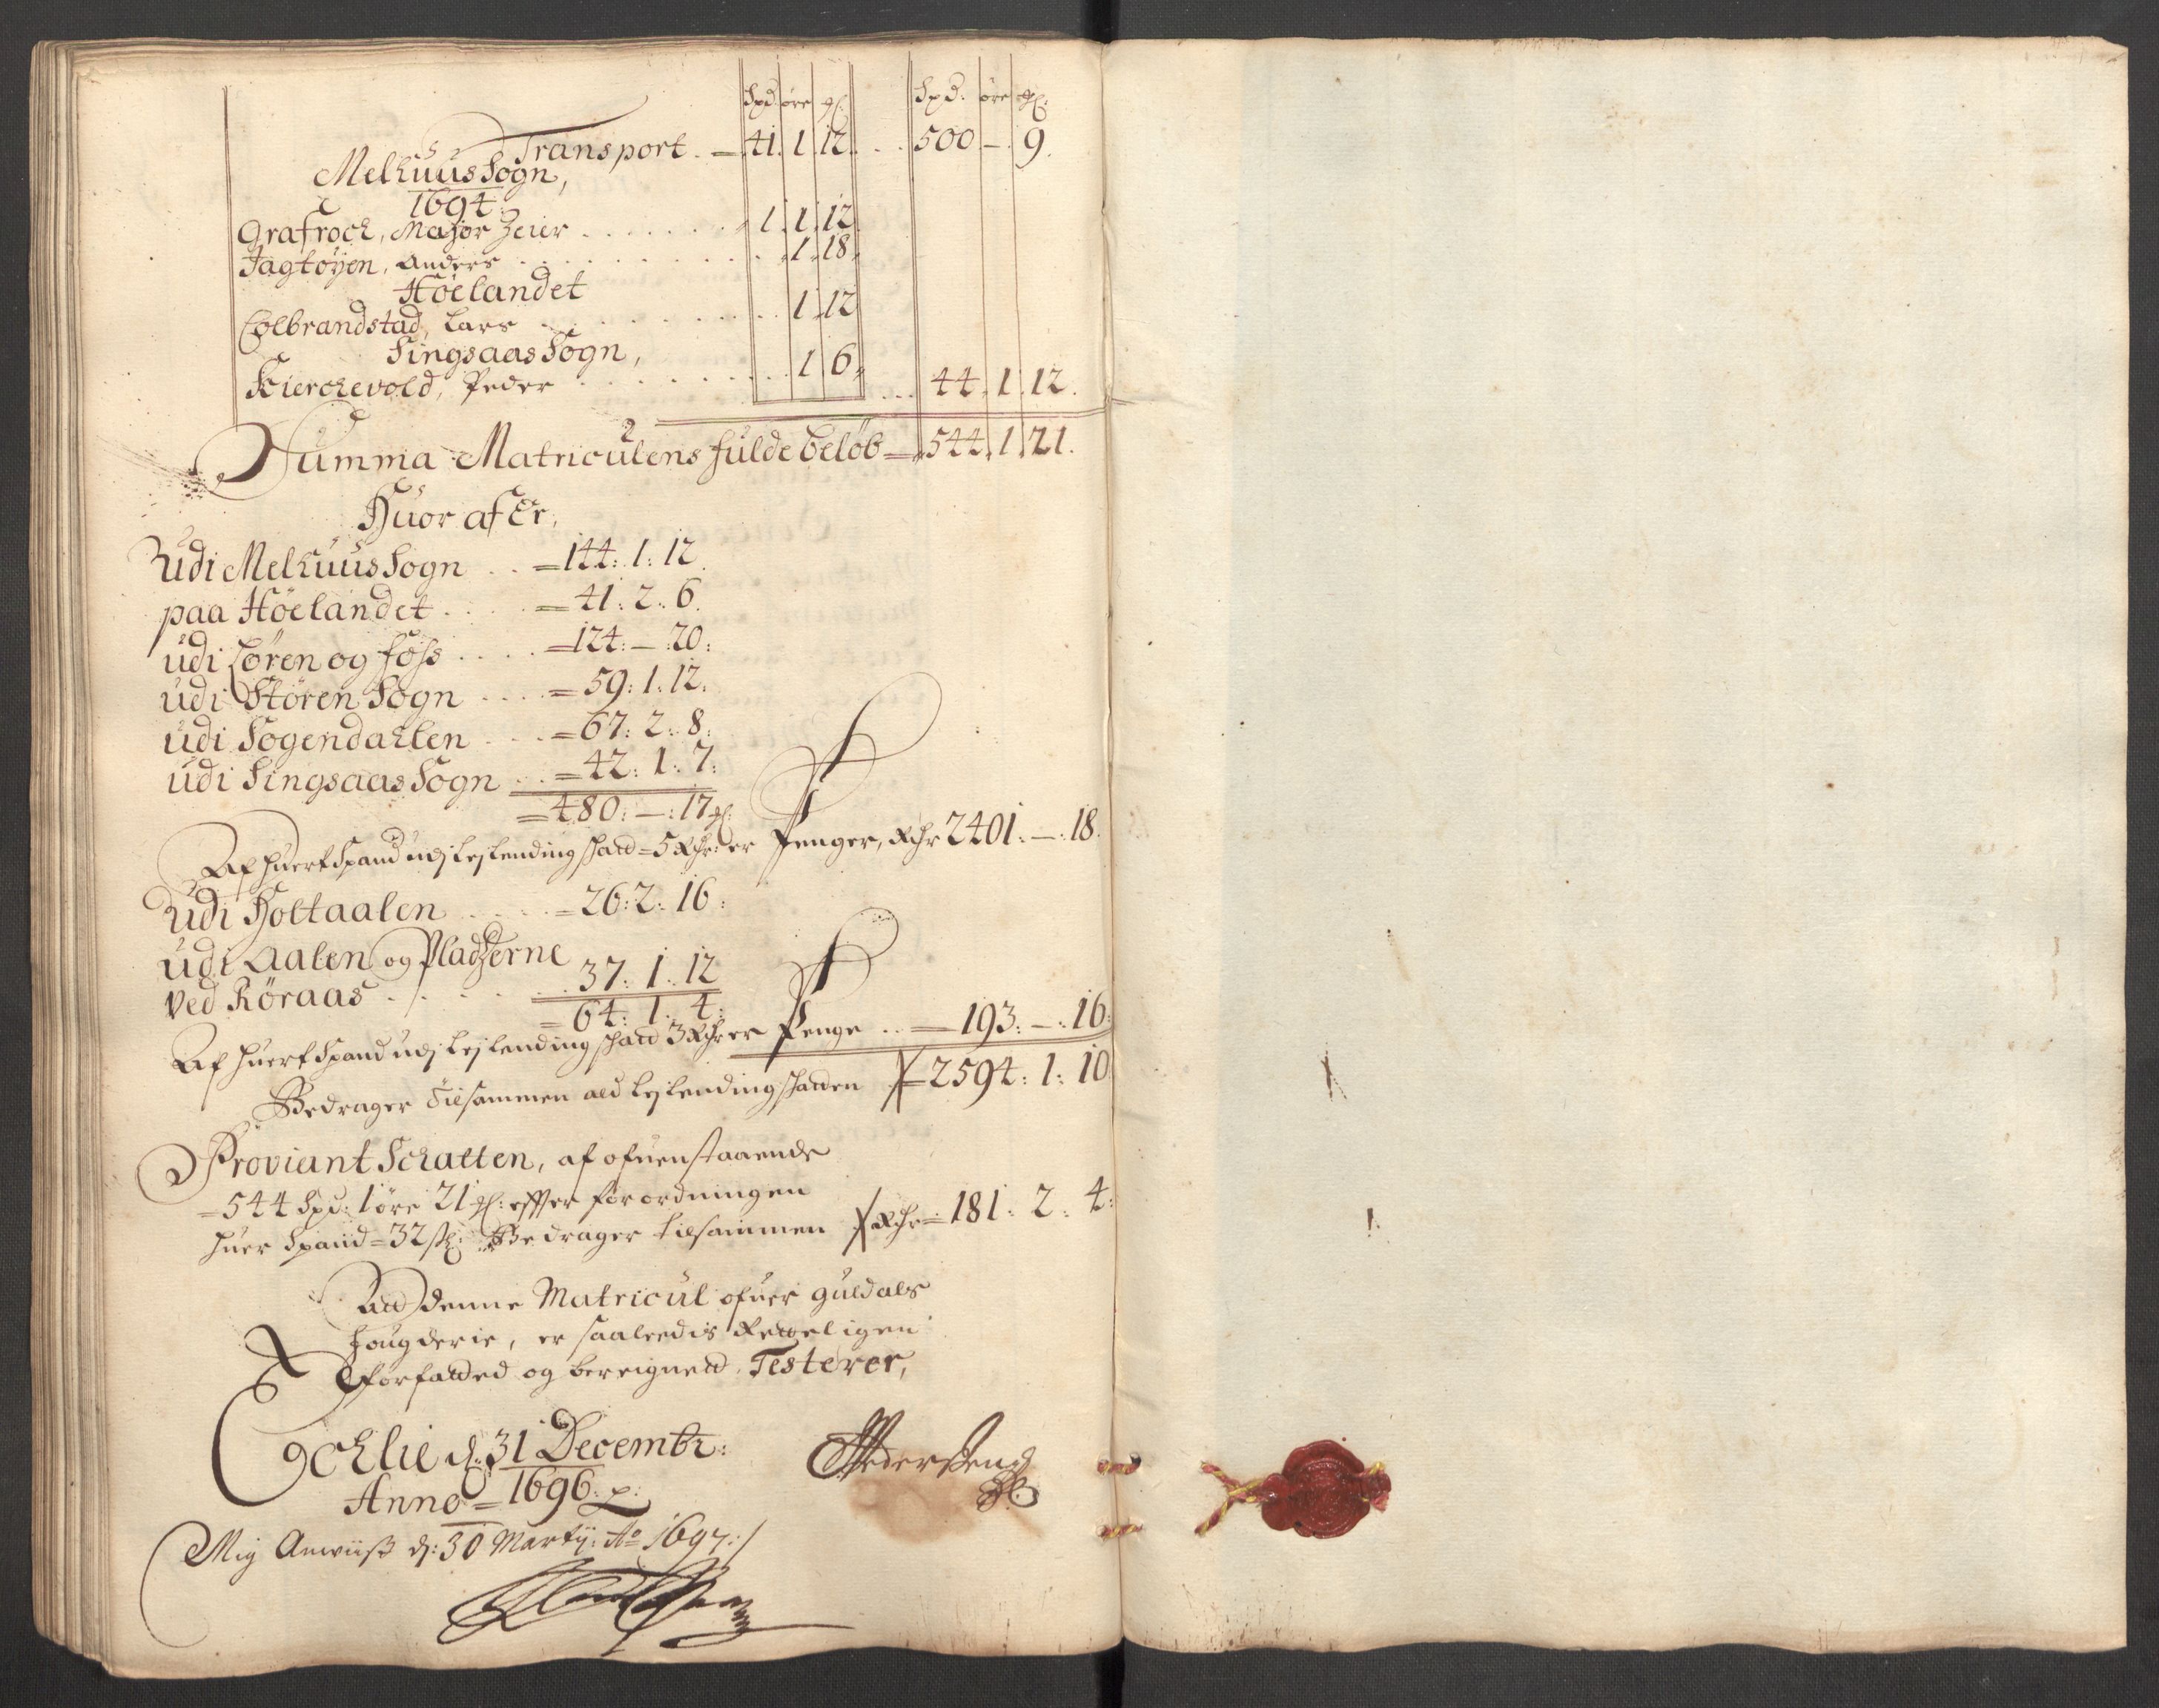 Spd. øre ꝑ. Spd. øre ꝑ.
Transport. = 41. 1. 12. . . 500 - 9.
Melhuus Sogn,
1694
Grafrock, Major Zeier . . . . . . 1. 1. 12.
Jagtøyen, Anders . . . . . . . . 1. 18.
Høelandet
Colbrandstad, Lars . . . . . . . . 1. 12
Singsaas Sogn,
Kierchevold, Peder . . . . . . . . 1. 6. . . . 44. 1. 12.
Summa Matriculens fulde beløb = 544. 1. 21.
Huor af Er,
Udi Melhuus Sogn . . = 144: 1: 12.
paa Höelandet . . . . = 41: 2: 6.
udi Lören og foss . . . . = 124: - : 20:
udi Stören Sogn . . . . = 59: 1: 12:
udi Sogendahlen . . . = 67: 2: 8:
udi Singsaas Sogn . . = 42: 1: 7:
= 480: - : 17 ꝑ:
Af huert Spand udj leylending skatt = 5 Rdr: er Penger, Rdr 2401: - : 18.
Udi Holtaalen . . . . = 26: 2: 16:
udi Aalen og Pladzerne
ved Röraas . . . . . . 37: 1: 12
= 64: 1: 4:
Af huert Spand udj leylending skatt 3 Rdr er Penge . . = 193: - : 16:
Bedrager tilsammen ald leylending skatten = 2594: 1: 10
Proviant Schatten, af ofuenstaaende
= 544 Spd: 1 øre 21 ꝑ: effter forordningen
huer Spand = 32 sk: Bedrager tilsammen Rdr = 181: 2: 4:
Att denne Matricul ofuer Guldals
fougderie, er saaledis Retteligen
forfatted og beregned, Testerer,
d: 31 Decembr:
Anno = 1696. p:
Mig Anviist d: 30 Martij: Ao 1697:/